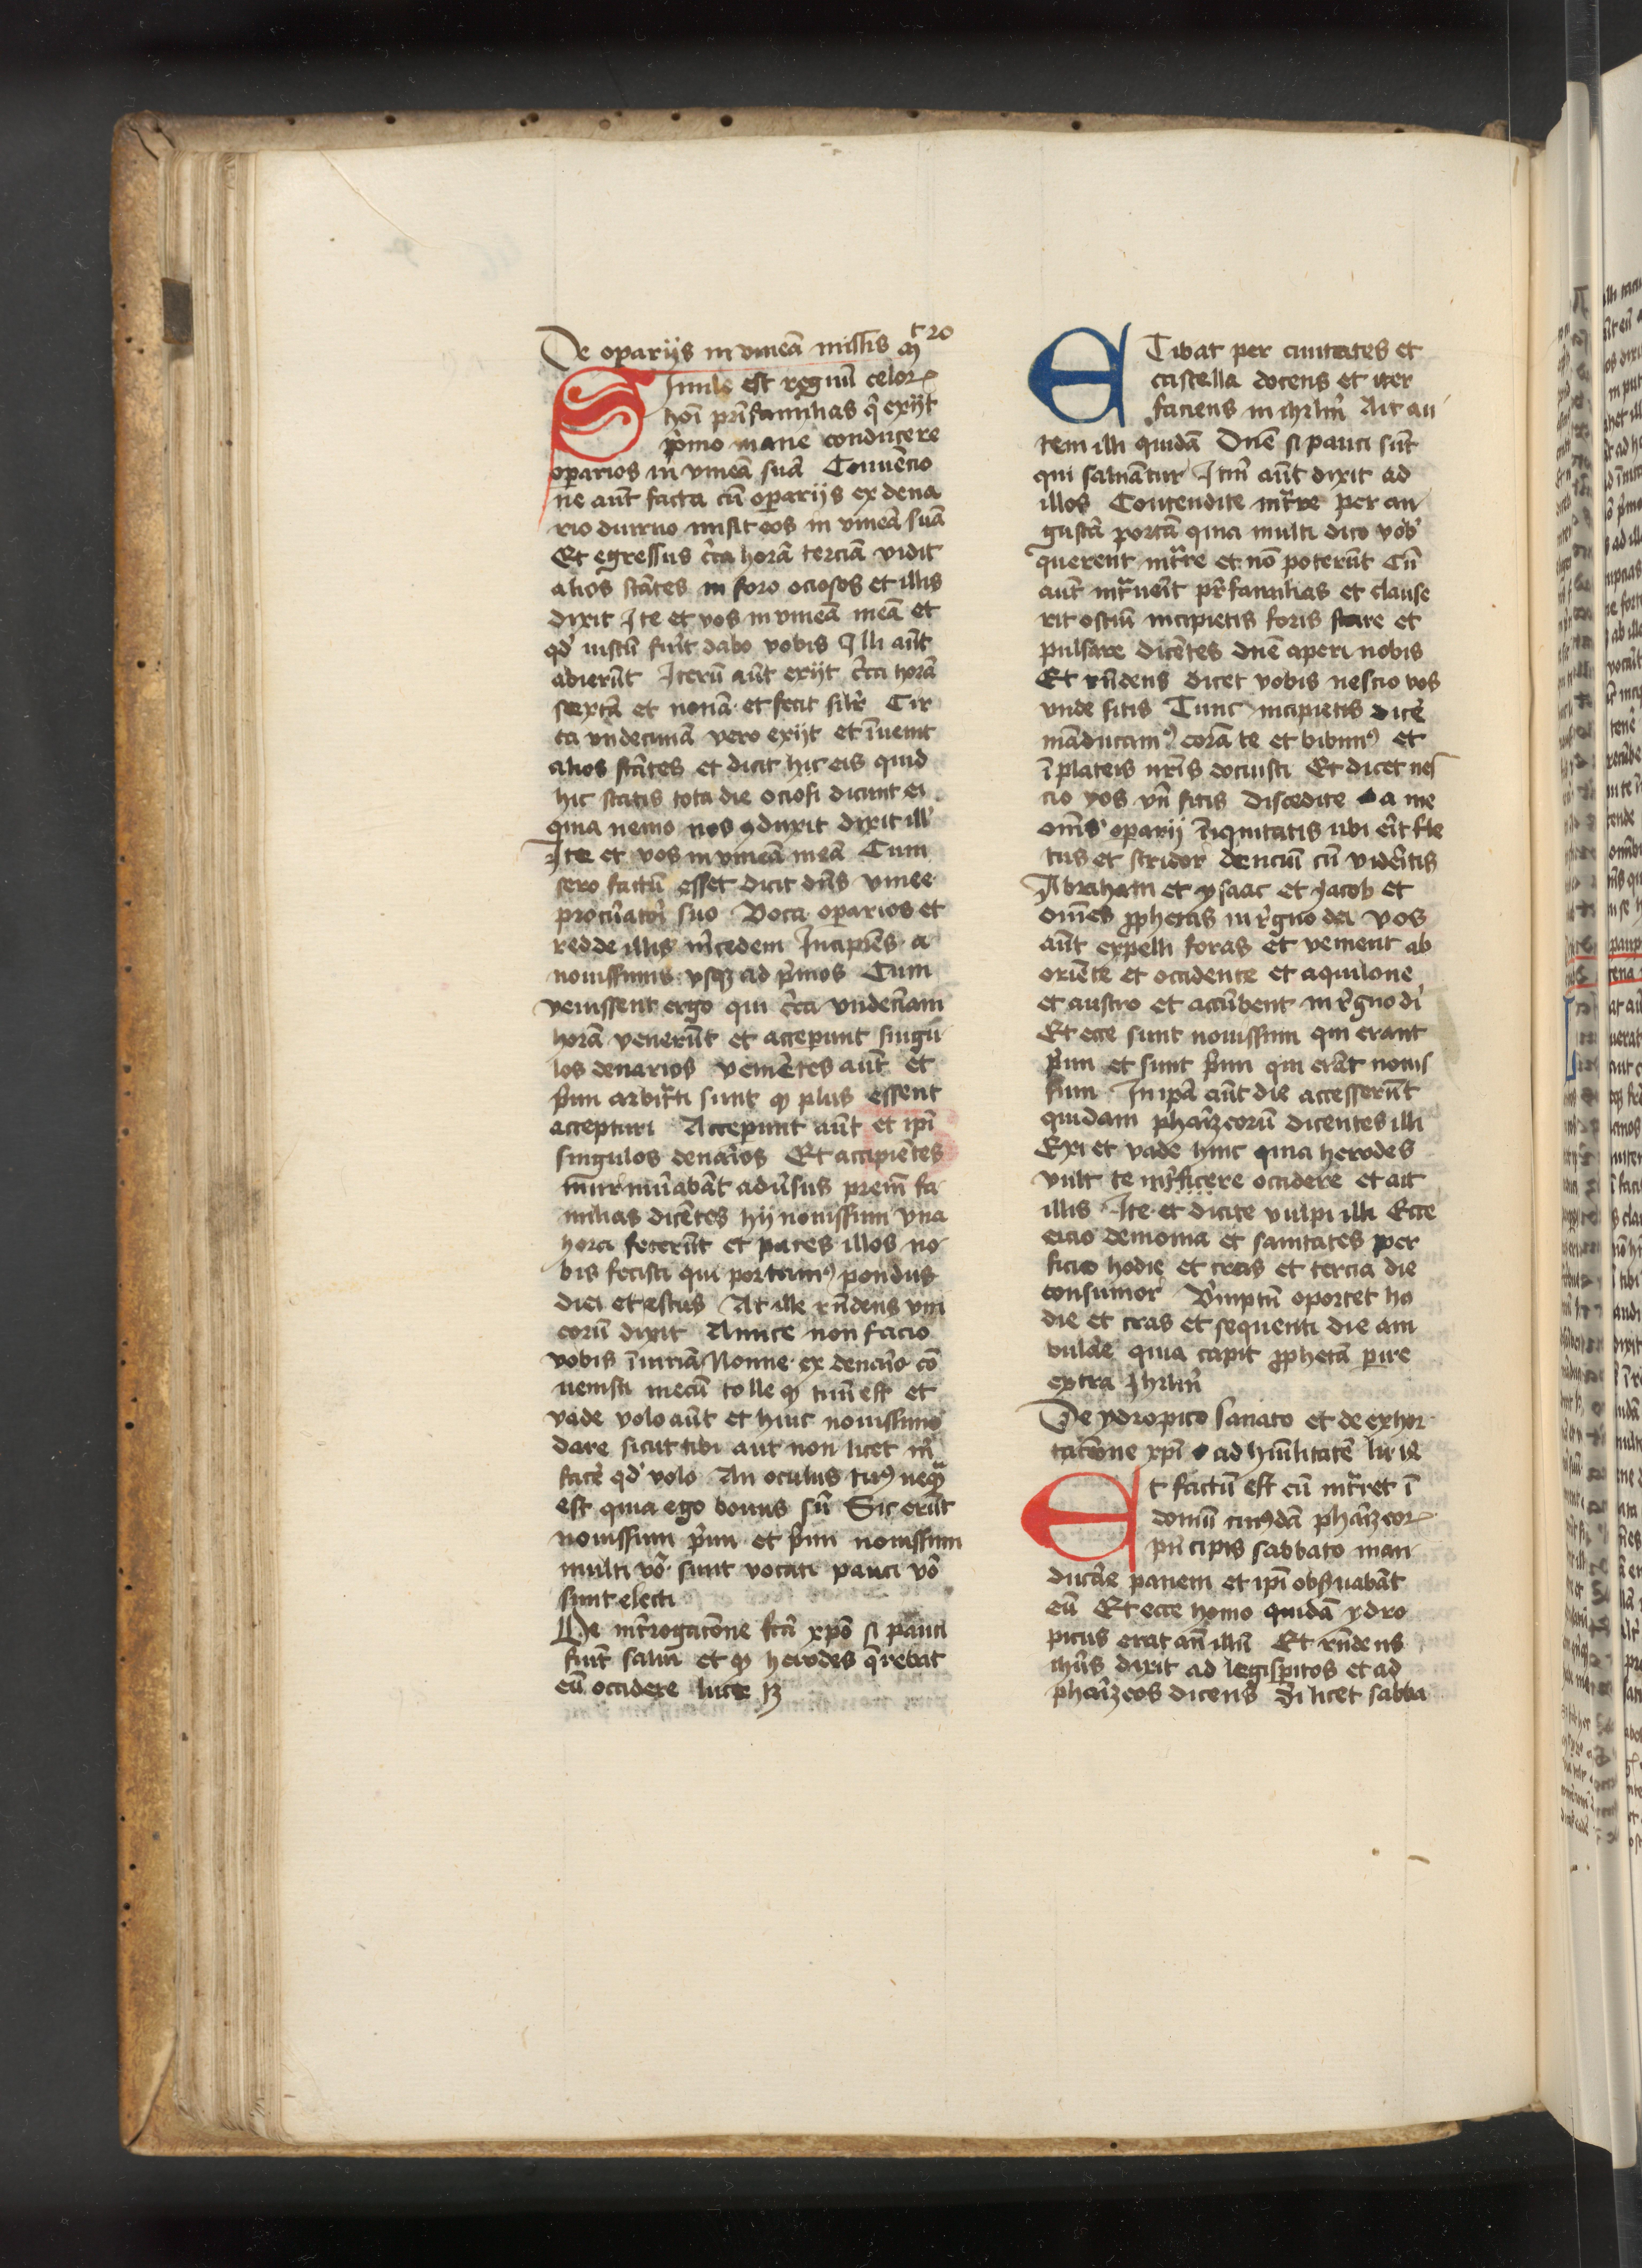 De opariijs in vineā missis mt 20
Simile est regnū celor
hoī prīfamilias q̄ exijt
p̄mo mane conducere
operarios in vineā suā Conuēcio
ne aūt facta cū operarijs ex dena
rio diurno misit eos in vineā suā
Et egressus c̄ca horā terciā vidit
alios stātes in foro ociosos et illis
dixit Ite et vos in vineā meā et
qd' iustū fuīt dabo vobis Illi aūt
abierūt Iterū aūt exijt c̄ca horā
sextā et nonā et fecit silr̄ Cir
ca vndecimā vero exijt et īuenit
alios stātes et dicit hic eis quid
hic statis tota die ociosi dicunt ei
quia nemo nos ꝯduxit dixit ill'
Ite et vos in vineā meā Cum
sero factū esset dicit dn̄s vinee
procūatōi suo Voca oparios et
redde illis m̄cedem Incipiēs a
nouissimis vsqꝫ ad p̄mos Cum
venissent ergo qui c̄ca vndecīam
horā venerūt et acceperunt singu
los denarios veniētes aūt et
p̄mi arbitrīti sunt ꝙ plus essent
accepturi Acceperunt aūt et ipī
singulos denaīos Et accipiētes
murmūabāt adūsus prem̄ fa
milias dicētes hij nouissimi vna
hora fecerūt et pares illos no
bis fecisti qui portauimꝰ pondus
diei et estus At ille rn̄dens vni
eorū dixit Amice non facio
vobis īiuriā Nonne ex denaīo cō
uenisti mecū tolle ꝙ tuū est et
vade volo aūt et huic nouissimo
dare sicut tibi aut non licet m̄
facē qd' volo An oculus tuꝰ neqꝫ
est quia ego bonus sū Sic erūt
nouissimi p̄mi et p̄mi nouissimi
multi vō sunt vocati pauci vō
sunt electi
De int̄rogatōne fcā xpō si pauci
sint saluā et ꝙ herodes q̄rebat
eū occidere luce 13
ETibat per ciuitates et
castella docens et iter
faciens in ihrlm̄ Ait au
tem illi quidā Dnē si pauci sūt
qui saluātur Ihī aūt dixit ad
illos Contendite int̄re per an
gustā portā quia multi dico vob'
querent int̄re et nō poterūt Cū
aūt int̄uēīt pr̄familias et clause
rit ostiū incipietis foris stare et
pulsare dicētes dnē aperi nobis
Et rn̄dens dicet vobis nescio vos
vnde sitis Tunc incipietis dicē
māducauimꝰ corā te et bibimꝰ et
ī plateis nr̄is docuisti Et dicet nes
cio vos vn̄ sitis discedite a me
om̄s oparij īiquitatis ubi eīt fle
tus et stridor dencīū cū videītis
Abraham et ysaac et yacob et
om̄es ꝓphetas in r̄gno dei vos
aūt expelli foras et venient ab
oriēte et occidente et aquilone
et austro et accūbent in r̄gno di
Et ecce sunt nouissimi qui erant
p̄mi et sunt p̄mi qui erāt nouis
simi In ipā aūt die accesserūt
quidam phaīzeorū dicentes illi
Exi et vade hinc quia herodes
vult te int̄ficere occidere et ait
illis Ite et dicite vulpi illi Ecce
eicio demonia et sanitates per
ficio hodie et cras et tercia die
consumor Ūmptū oportet ho
die et cras et sequenti die am
bulāe quia capit ꝓphetā pire
extra Ihrlm̄
De ydropico sanato et de exhor
tatōne xpī ad hūilitatē lu 14
Et factū est cū int̄ret ī
domū cuiꝰdā phaīzeor
pn̄cipis sabbato man
ducāe panem et ipī obꝰuabāt
eū Et ecce homo quidā ydro
picus erat an̄ illū Et rn̄dens
ihūs dixit ad legispitos et ad
phaīzeos dicens Si licet sabba